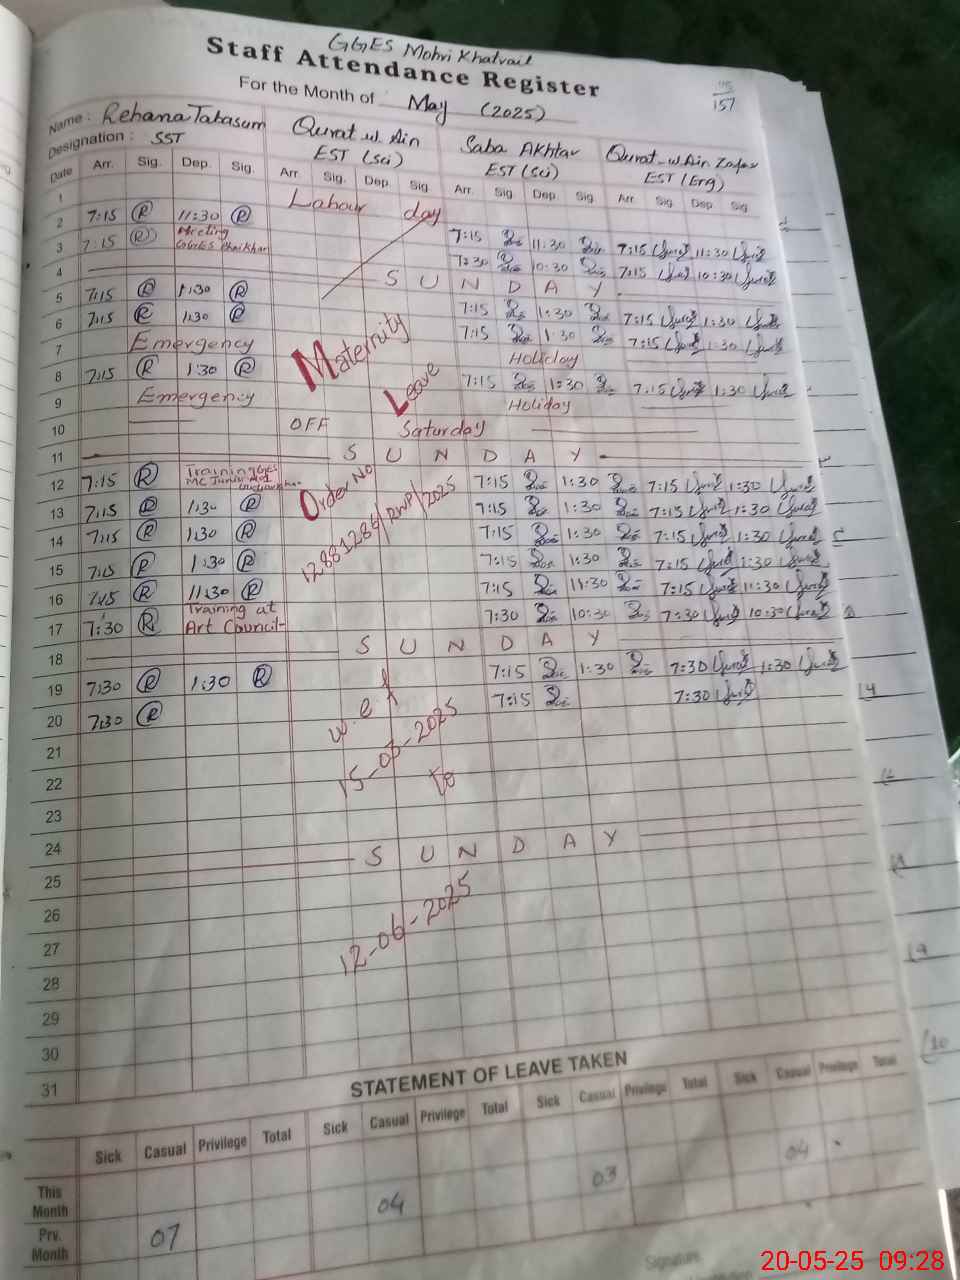 GGES Mohri Khatrail
Staff Attendance Register
For the Month of May (2025)
157
Name : Rehana Tabasum Qurat-ul-Ain Saba Akhtar Qurat-ul-Ain Zafar
Designation : SST EST (Sci) EST (Sci) EST (Eng)
Date Arr. Sig. Dep. Sig. Arr. Sig. Dep. Sig. Arr. Sig. Dep. Sig. Arr. Sig. Dep. Sig.
1 Labour day
2 7:15 R 11:30 R 7:15 11:30 7:15 11:30
3 7:15 R Meeting GGES 7:30 10:30 7:15 10:30
4 S U N D A Y
5 7:15 R 1:30 R 7:15 1:30 7:15 1:30
6 7:15 R 1:30 R 7:15 1:30 7:15 1:30
7 Emergency Holiday
8 7:15 R 1:30 R 7:15 1:30 7:15 1:30
9 Emergency Holiday
10 OFF Saturday
11 S U N D A Y
12 7:15 R Training 7:15 1:30 7:15 1:30
13 7:15 R 1:30 R 7:15 1:30 7:15 1:30
14 7:15 R 1:30 R 7:15 1:30 7:15 1:30
15 7:15 R 1:30 R 7:15 1:30 7:15 1:30
16 7:15 R 11:30 R 7:15 11:30 7:15 11:30
17 7:30 R Training at Art Council- 7:30 10:30 7:30 10:30
18 S U N D A Y
19 7:30 R 1:30 R 7:15 1:30 7:30 1:30
20 7:30 R 7:15 7:30
21
22
23
24
25 S U N D A Y
26
27
28
29
30
31
Maternity
Leave
Order No
12881286/RWP/2025
w.e.f
15-03-2025
to
12-06-2025
STATEMENT OF LEAVE TAKEN
Sick Casual Privilege Total Sick Casual Privilege Total Sick Casual Privilege Total Sick Casual Privilege Total
This Month
Prv. Month 07 04 03 04
Signature
20-05-25 09:28